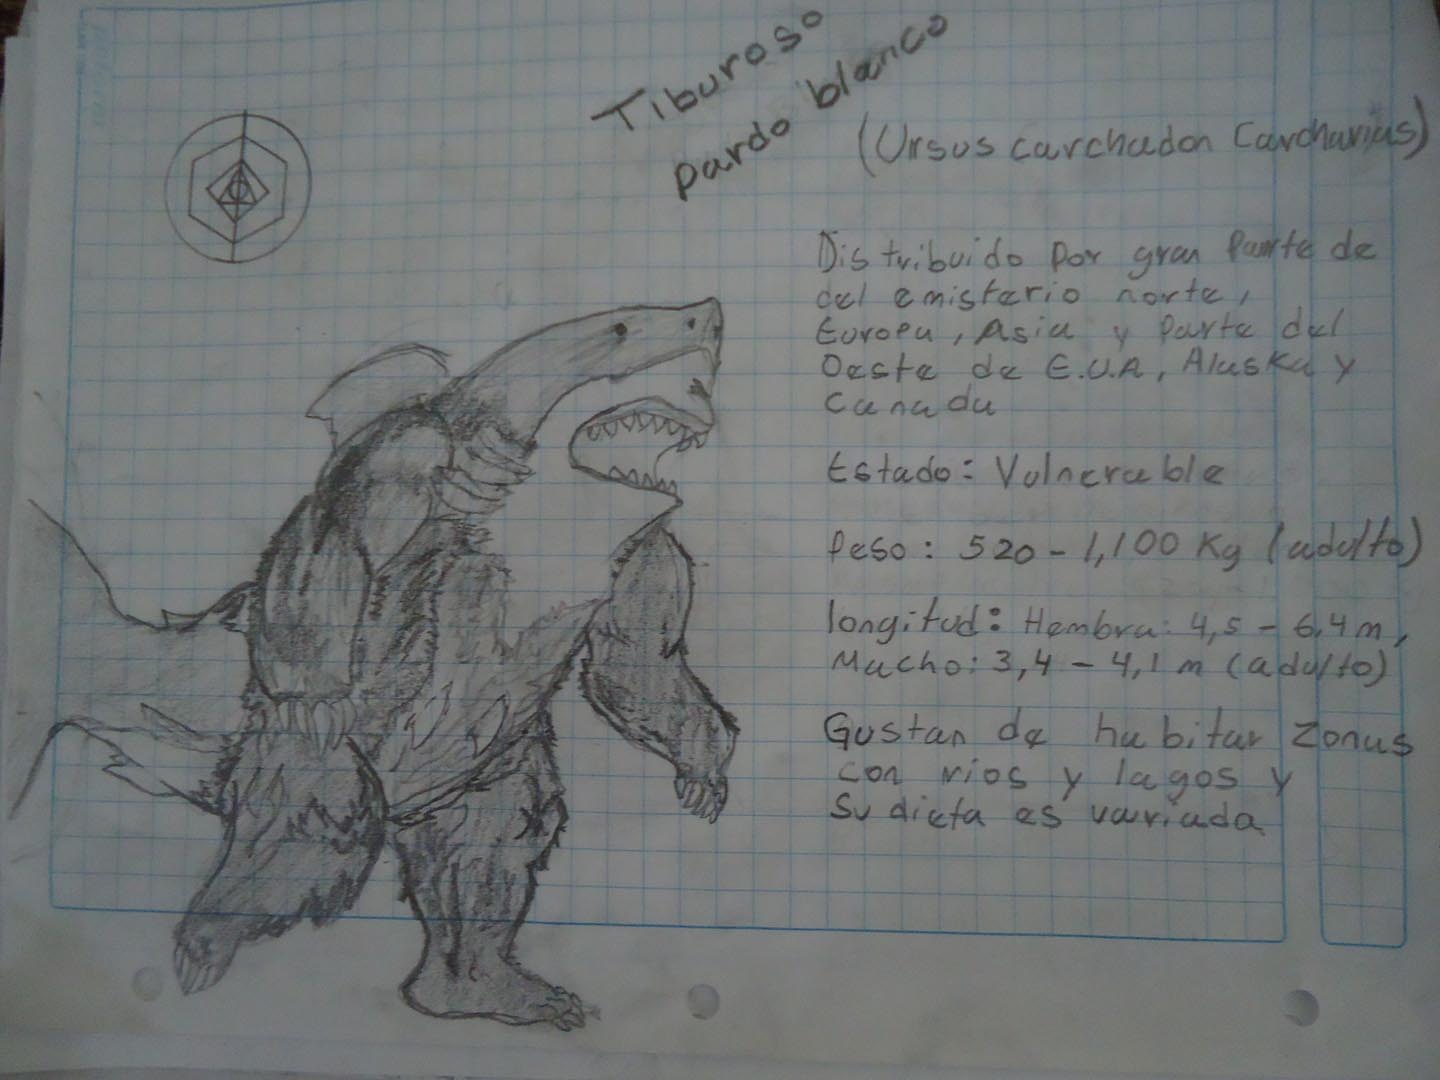 Tiburoso
pardo blanco
(Ursus carchadon Carcharias)
Distribuido por gran parte de
del emisferio norte,
Europa, Asia y parte del
Oeste de E.U.A, Alaska y
Canada
Estado: Vulnerable
Peso: 520 - 1,100 Kg (adulto)
longitud: Hembra: 4,5 - 6,4 m,
Macho: 3,4 - 4,1 m (adulto)
Gustan de habitar Zonas
con rios y lagos y
Su dieta es variada